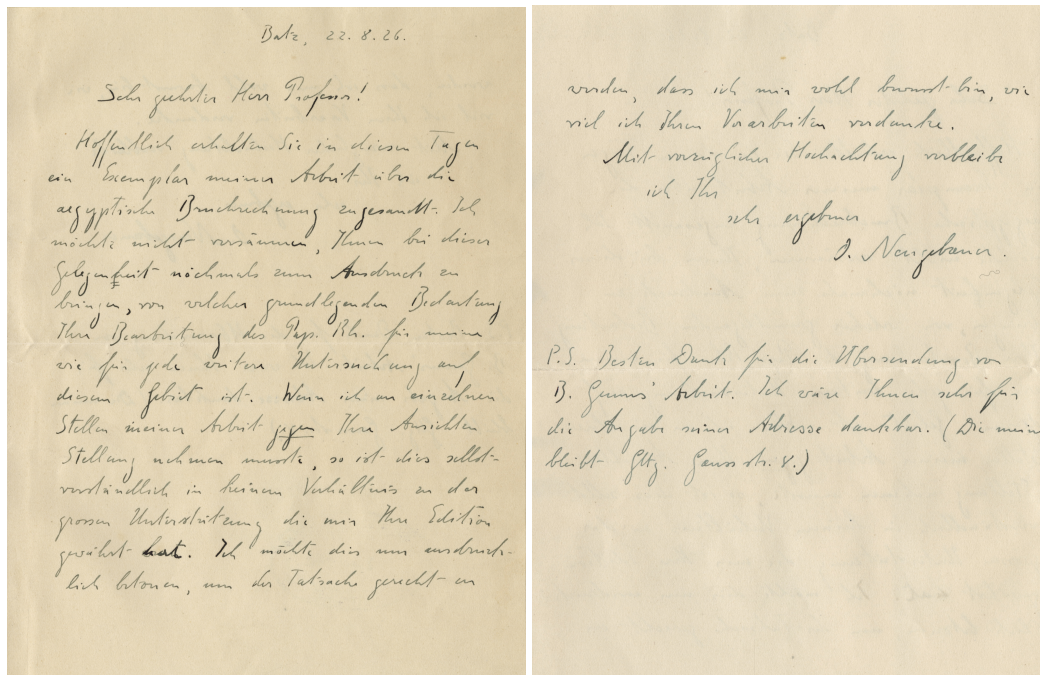 Batz, 22.8.26.
Sehr geehrter Herr Professor!
Hoffentlich erhalten Sie in diesen Tagen
ein Exemplar meiner Arbeit über die
aegyptische Bruchrechnung zugesandt. Ich
möchte nicht versäumen, Ihnen bei dieser
Gelegenheit nochmals zum Ausdruck zu
bringen, von welcher grundlegenden Bedeutung
Ihre Bearbeitung des Pap. Rh. für meine
wie für jede weitere Untersuchung auf
diesem Gebiet ist. Wenn ich an einzelnen
Stellen meiner Arbeit gegen Ihre Ansichten
Stellung nehmen musste, so ist dies selbst-
verständlich in keinem Verhältnis zu der
grossen Unterstützung die mir Ihre Edition
gewährt hat. Ich möchte dies nur ausdrück-
lich betonen, um der Tatsache gerecht zu
werden, dass ich mir wohl bewusst bin, wie
viel ich Ihren Vorarbeiten verdanke.
Mit vorzüglicher Hochachtung verbleibe
ich Ihr
sehr ergebener
O. Neugebauer.
P.S. Besten Dank für die Übersendung von
B. Gunns' Arbeit. Ich wäre Ihnen sehr für
die Angabe seiner Adresse dankbar. (Die meine
bleibt Gttg. Gaussstr. 8.)